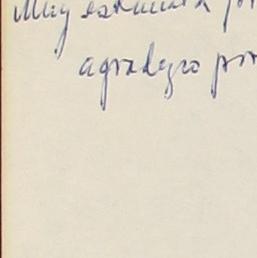 Muy estimada
agradezco por